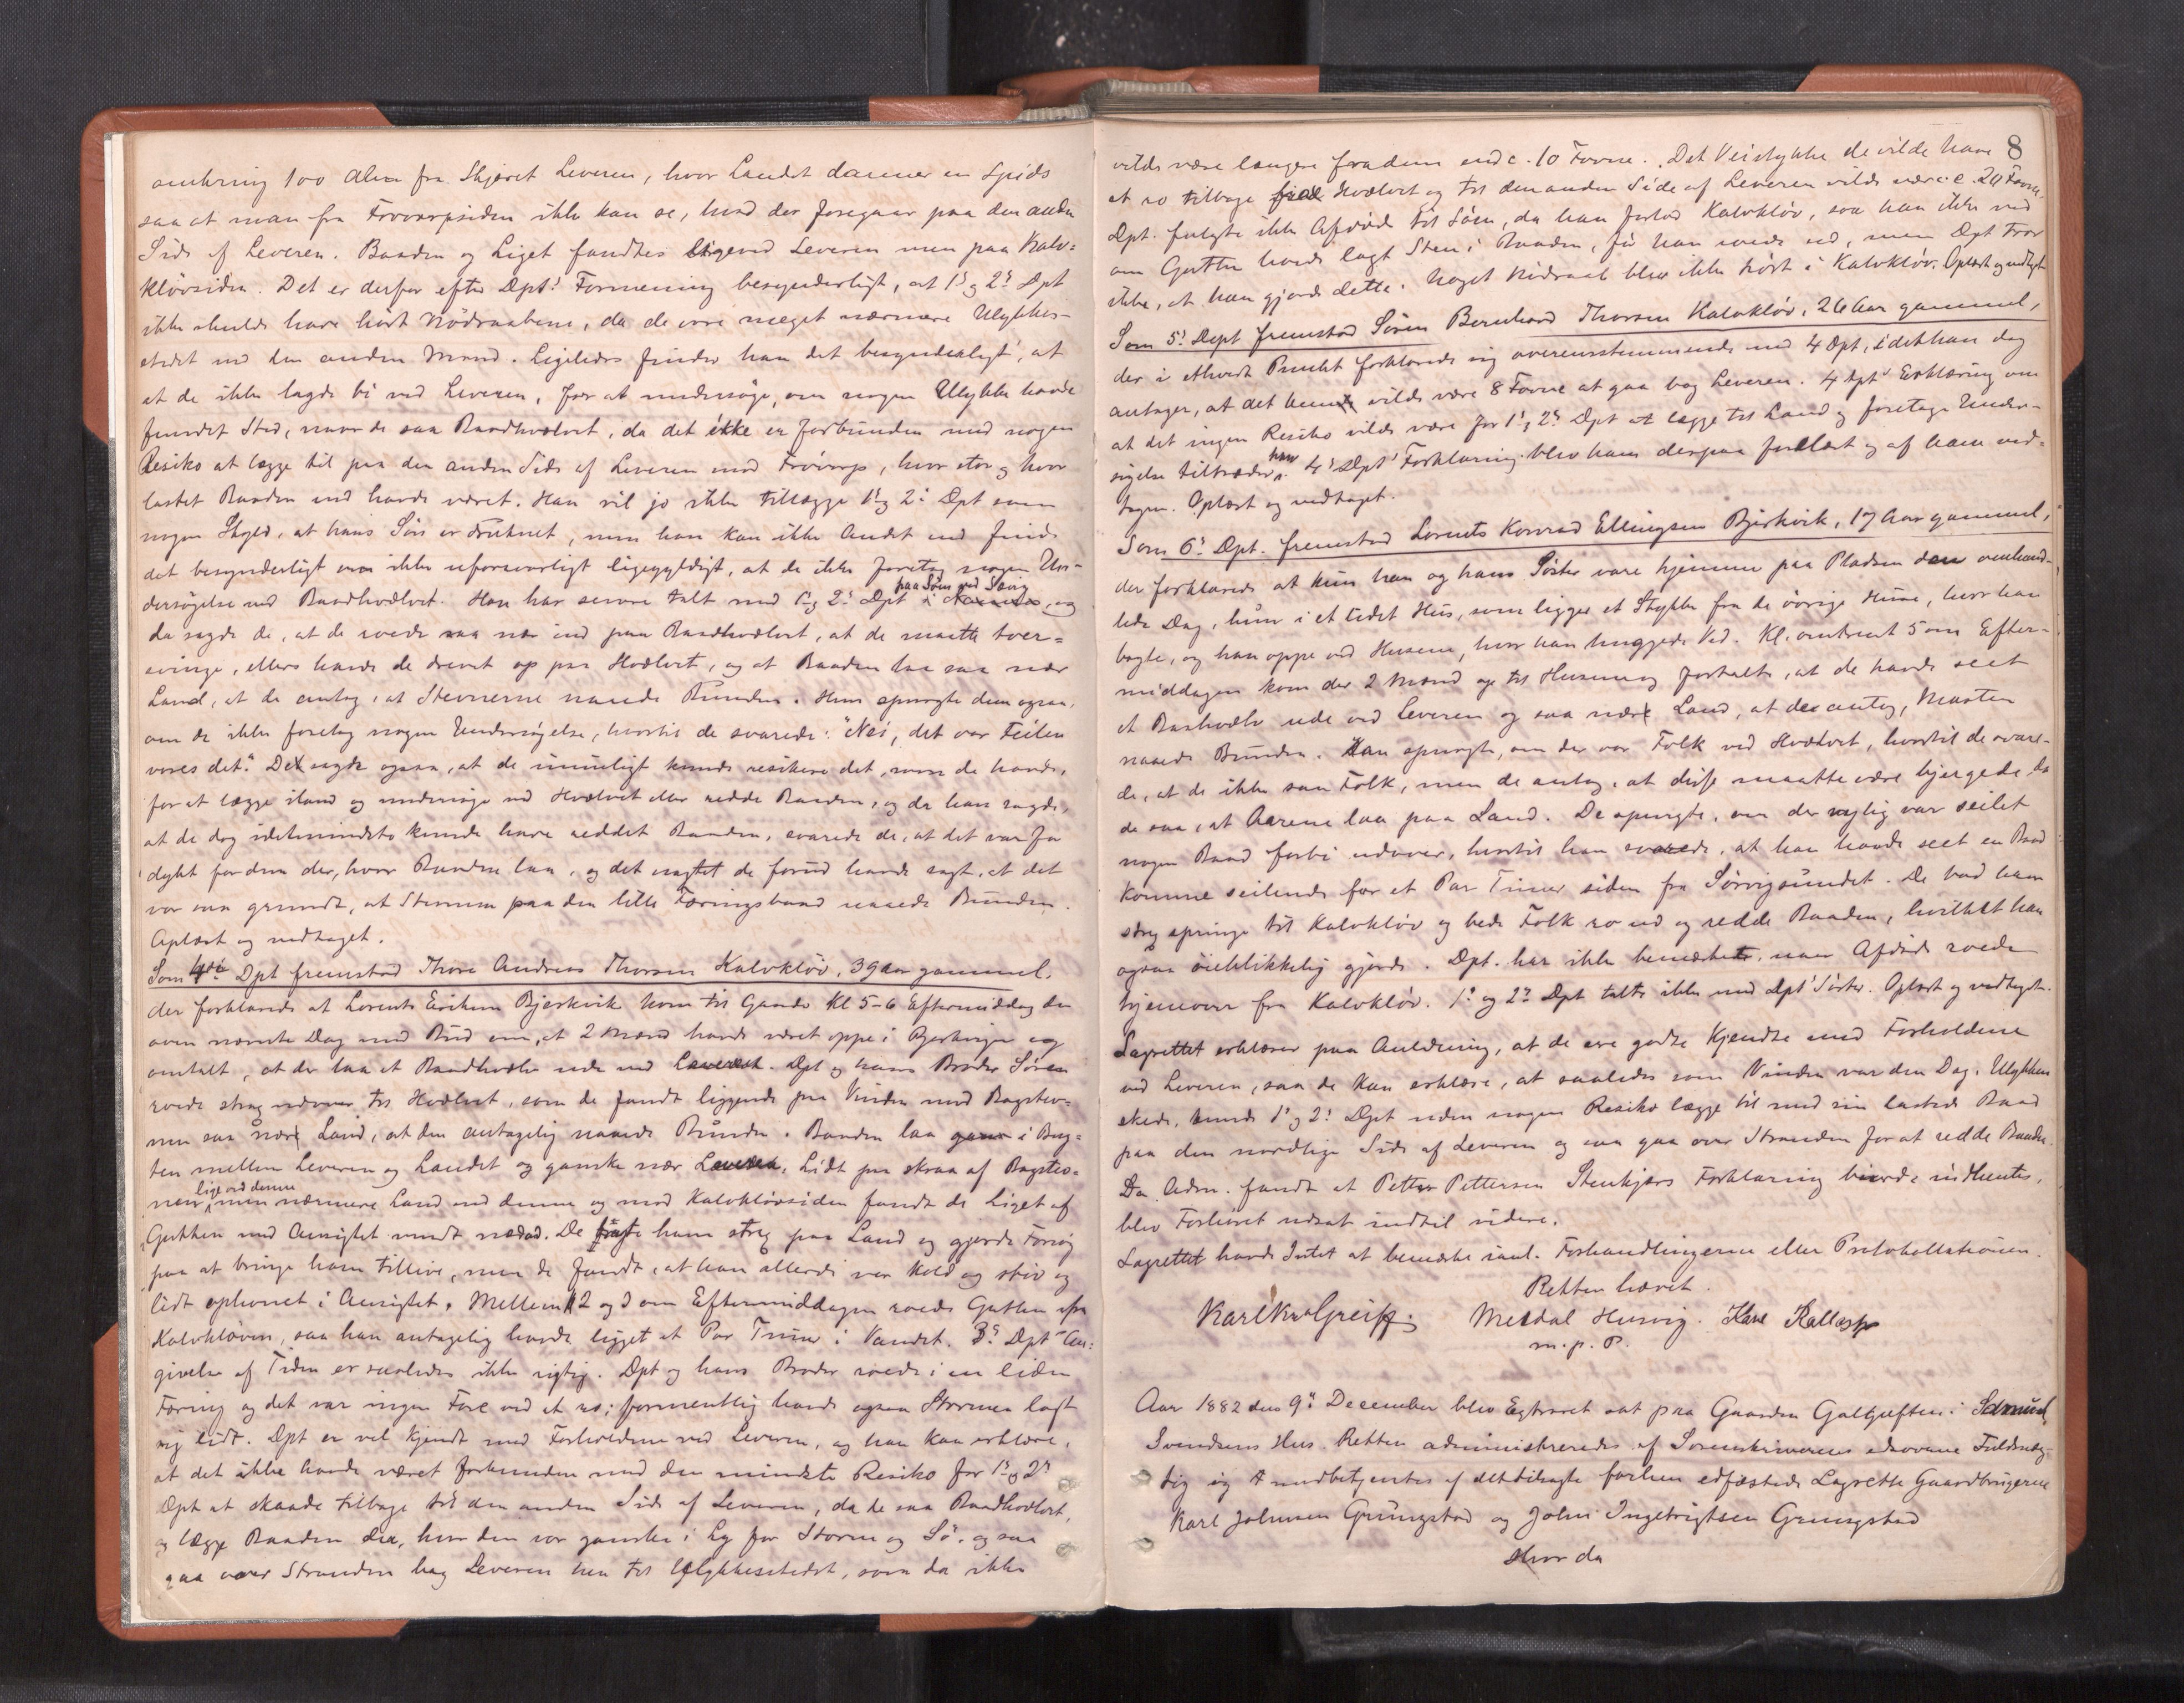 omkring 100 Alen fra Skjæret Leveren, hvor Landet danner en Spids
saa at man fra Frovarpsiden ikke kan se, hvad der foregaar paa den anden
Side af Leveren. Baaden og Liget fandtes ligeved Leveren men paa Kalv-
kløvsiden. Det er derfor efter Dpts Formening besynderligt, at 1s og 2s Dpt
ikke skulde have hørt Nødraabene, da de vare meget nærmere Ulykkes-
stedet end den anden Mand. Ligeledes finder han det besynderligt, at
at de ikke lagde bi ved Leveren, for at undersøge, om nogen Ulykke havde
fundet Sted, naar de saa Baadhvælvet, da det ikke er forbunden med nogen
Resiko at lægge til paa den anden Side af Leveren mod Frövarp, hvor stor og hvor
lastet Baaden end havde været. Han vil jo ikke tillægge 1s og 2s Dpt som
nogen Skyld, at hans Søn er druknet, men han kan ikke Andet end finde
det besynderligt om ikke uforsvarligt ligegyldigt, at de ikke foretog nogen Un-
dersøgelse ved Baadhvælvet. Han har senere talt med 1s og 2s Dpt paa Søen ved og
da sagde de, at de roede saa nær ind paa Baadhvælvet, at de maatte tver-
svinge, ellers havde de drevet op paa Hvælvet, og at Baaden laa saa nær
Land, at de antog, at Stevnerne naaede Bunden. Han spurgte dem ogsaa,
om de ikke foretog nogen Undersøgelse, hvortil de svarede: "Nei, det var Feilen
vores det." De sagde ogsaa, at de umuligt kunde resikere det, som de havde,
for at lægge iland og undersøge ved Hvælvet eller redde Baaden, og da han sagde,
at de dog idetmindste kunde have reddet Baaden, svarede de, at det var for
dybt for dem der, hvor Baaden laa, og det uagtet de forud havde sagt, at det
var saa grundt, at Stevnen paa den lille Færingsbaad naaede Bunden.
Oplæst og vedtaget.
Som 4de Dpt fremstod Thore Andreas Thorsen Kalvkløv, 39 Aar gammel,
der forklarede at Lorents Bjerkvik kom til Gaarde Kl 5-6 Eftermiddag den
oven nævnte Dag med Bud om, at 2 Mænd havde været oppe i og
omtalt, at der laa et Baadhvælv ude ved Leveren. Dpt og hans Broder Søren
roede strax udover til Hvælvet, som de fandt liggende paa Vinden med Bagstev-
nen saa nær Land, at den antagelig naaede Bunden. Baaden laa i Bug-
ten mellem Leveren og Landet og ganske nær Leveren. Lidt paa skraa af Bagstev-
nen, lige ved denne men nærmere Land end denne og mod Kalvkløvsiden fandt de Liget af
Gutten med Ansigtet vendt nedad. De bragte ham strax paa Land og gjorde Forsøg
paa at bringe ham tillive, men de fandt, at han allerede var kold og stiv og
lidt ophovnet i Ansigtet. Mellem 2 og 3 om Eftermiddagen roede Gutten ifra
Kalvkløven, saa han antagelig havde ligget et Par Timer i Vandet. 3s Dpts An-
givelse af Tiden er saaledes ikke rigtig. Dpt og hans Broder roede i en liden
Færing og det var ingen Fare ved at ro; formentlig havde ogsaa Stormen lagt
sig lidt. Dpt er vel kjendt med Forholdene ved Leveren, og han kan erklære,
at det ikke havde været forbunden med den mindste Resiko for 1s og 2s
Dpt at skaade tilbage til den anden Side af Leveren, da de saa Baadhvælvet,
og lægge Baaden der, hvor den var ganske i Ly for Storm og Sø, og saa
gaa over Stranden bag Leveren hen til Ulykkesstedet, som da ikke
8
vilde være længere fra dem end c. 10 Favne. Det Veistykke de vilde have
at ro tilbage Hvælvet og til den anden Side af Leveren vilde være c. 20 Favne.
Dpt. fulgte ikke Afdøde til Søen, da han forlod Kalvkløv, saa han ikke ved
om Gutten havde lagt Sten i Baaden, før han roede ud, men Dpt tror
ikke, at han gjorde dette. Noget Nødraab blev ikke hørt i Kalvkløv. Oplæst og vedtaget
Som 5s Dept fremstod Søren Bernhard Thorsen Kalvkløv, 26 Aar gammel,
der i ethvert Punkt forklarede sig overensstemmende med 4 Dpt, idet han dog
antager, at det vilde være 8 Favne at gaa bag Leveren. 4 Dpts Erklæring om
at det ingen Resiko vilde være for 1s og 2s Dpt at lægge til Land og foretage Under-
søgelse tiltræder han. 4s Dpts Forklaring blev ham derpaa forelæst og af ham ved-
tagen. Oplæst og vedtaget.
Som 6s Dpt. fremstod Lorents Konrad Ellingsen Bjerkvik, 17 Aar gammel,
der forklarede at kun han og hans Søster vare hjemme paa Pladsen den omhand-
lede Dag, hun i et lidet Hus, som ligger et Stykke fra de øvrige Huse, hvor han
bagte, og han oppe ved Husene, hvor han huggede Ved. Kl. omtrent 5 om Efter-
middagen kom der 2 Mænd op til Husene og fortalte, at de havde seet
et Baadhvælv ude ved Leveren og saa nær Land, at de antog, Masten
naaede Bunden. Han spurgte, om der var Folk ved Hvælvet, hvortil de svare-
de, at de ikke saa Folk, men de antog, at disse maatte være bjergede, da
de saa, at Aarene laa paa Land. De spurgte, om der nylig var seilet
nogen Baad forbi udover, hvortil han svarede, at han havde seet en Baad
komme seilende for et Par Timer siden fra Sørvigsundet. De bad ham
strax springe til Kalvkløv og bede Folk ro ud og redde Baaden, hvilket han
ogsaa øieblikkelig gjorde. Dpt. har ikke bemærket, naar Afdøde roede
hjemover fra Kalvkløv. 1s og 2s Dpt talte ikke med Dpts Søster. Oplæst og vedtaget.
Lagrettet erklærer paa Anledning, at de ere godt kjendte med Forholdene
ved Leveren, saa de kan erklære, at saaledes som Vinden var den Dag, Ulykken
skede, kunde 1s og 2s Dpt uden nogen Resiko lægge til med sin lastede Baad
paa den nordlige Side af Leveren og saa gaa over Stranden for at redde Baaden.
Da Adm. fandt at Petter Pettersen Stenkjærs Forklaring burde indhentes,
blev Forhøret udsat indtil videre.
Lagrettet havde Intet at bemærke saavel. Forhandlingerne eller Protokollationen.
Retten hævet.
Karl Kr. Greiff. Meldal Husvig. Hans
m. p. P.
Aar 1882 den 9de December blev Extraret sat paa Gaarden Galtgeften i
Svendsens Hus. Retten administreredes af Sorenskriverens edsvorne Fuldmæg-
tig og medbetjentes af det tilsagte forhen edfæstede Lagrette Gaardbrugerne
Karl Johnsen Grungstad og John Ingebrigtsen Grungstad
Hvor da